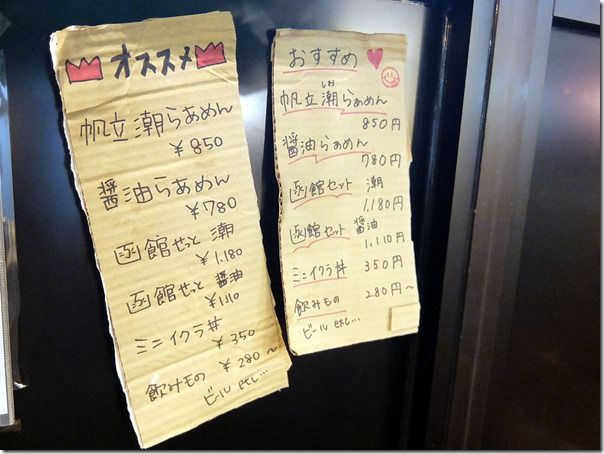 オススメ
帆立潮らぁめん
¥850
醤油らぁめん
¥780
函館せっと 潮
¥1,180
函館せっと 醤油
¥1,110
ミニイクラ丼
¥350
飲みもの ¥280〜
ビール etc…
おすすめ
しお
帆立潮らぁめん
850円
醤油らぁめん
780円
函館セット 潮
1,180円
函館セット 醤油
1,110円
ミニイクラ丼 350円
飲みもの 280円〜
ビール etc…